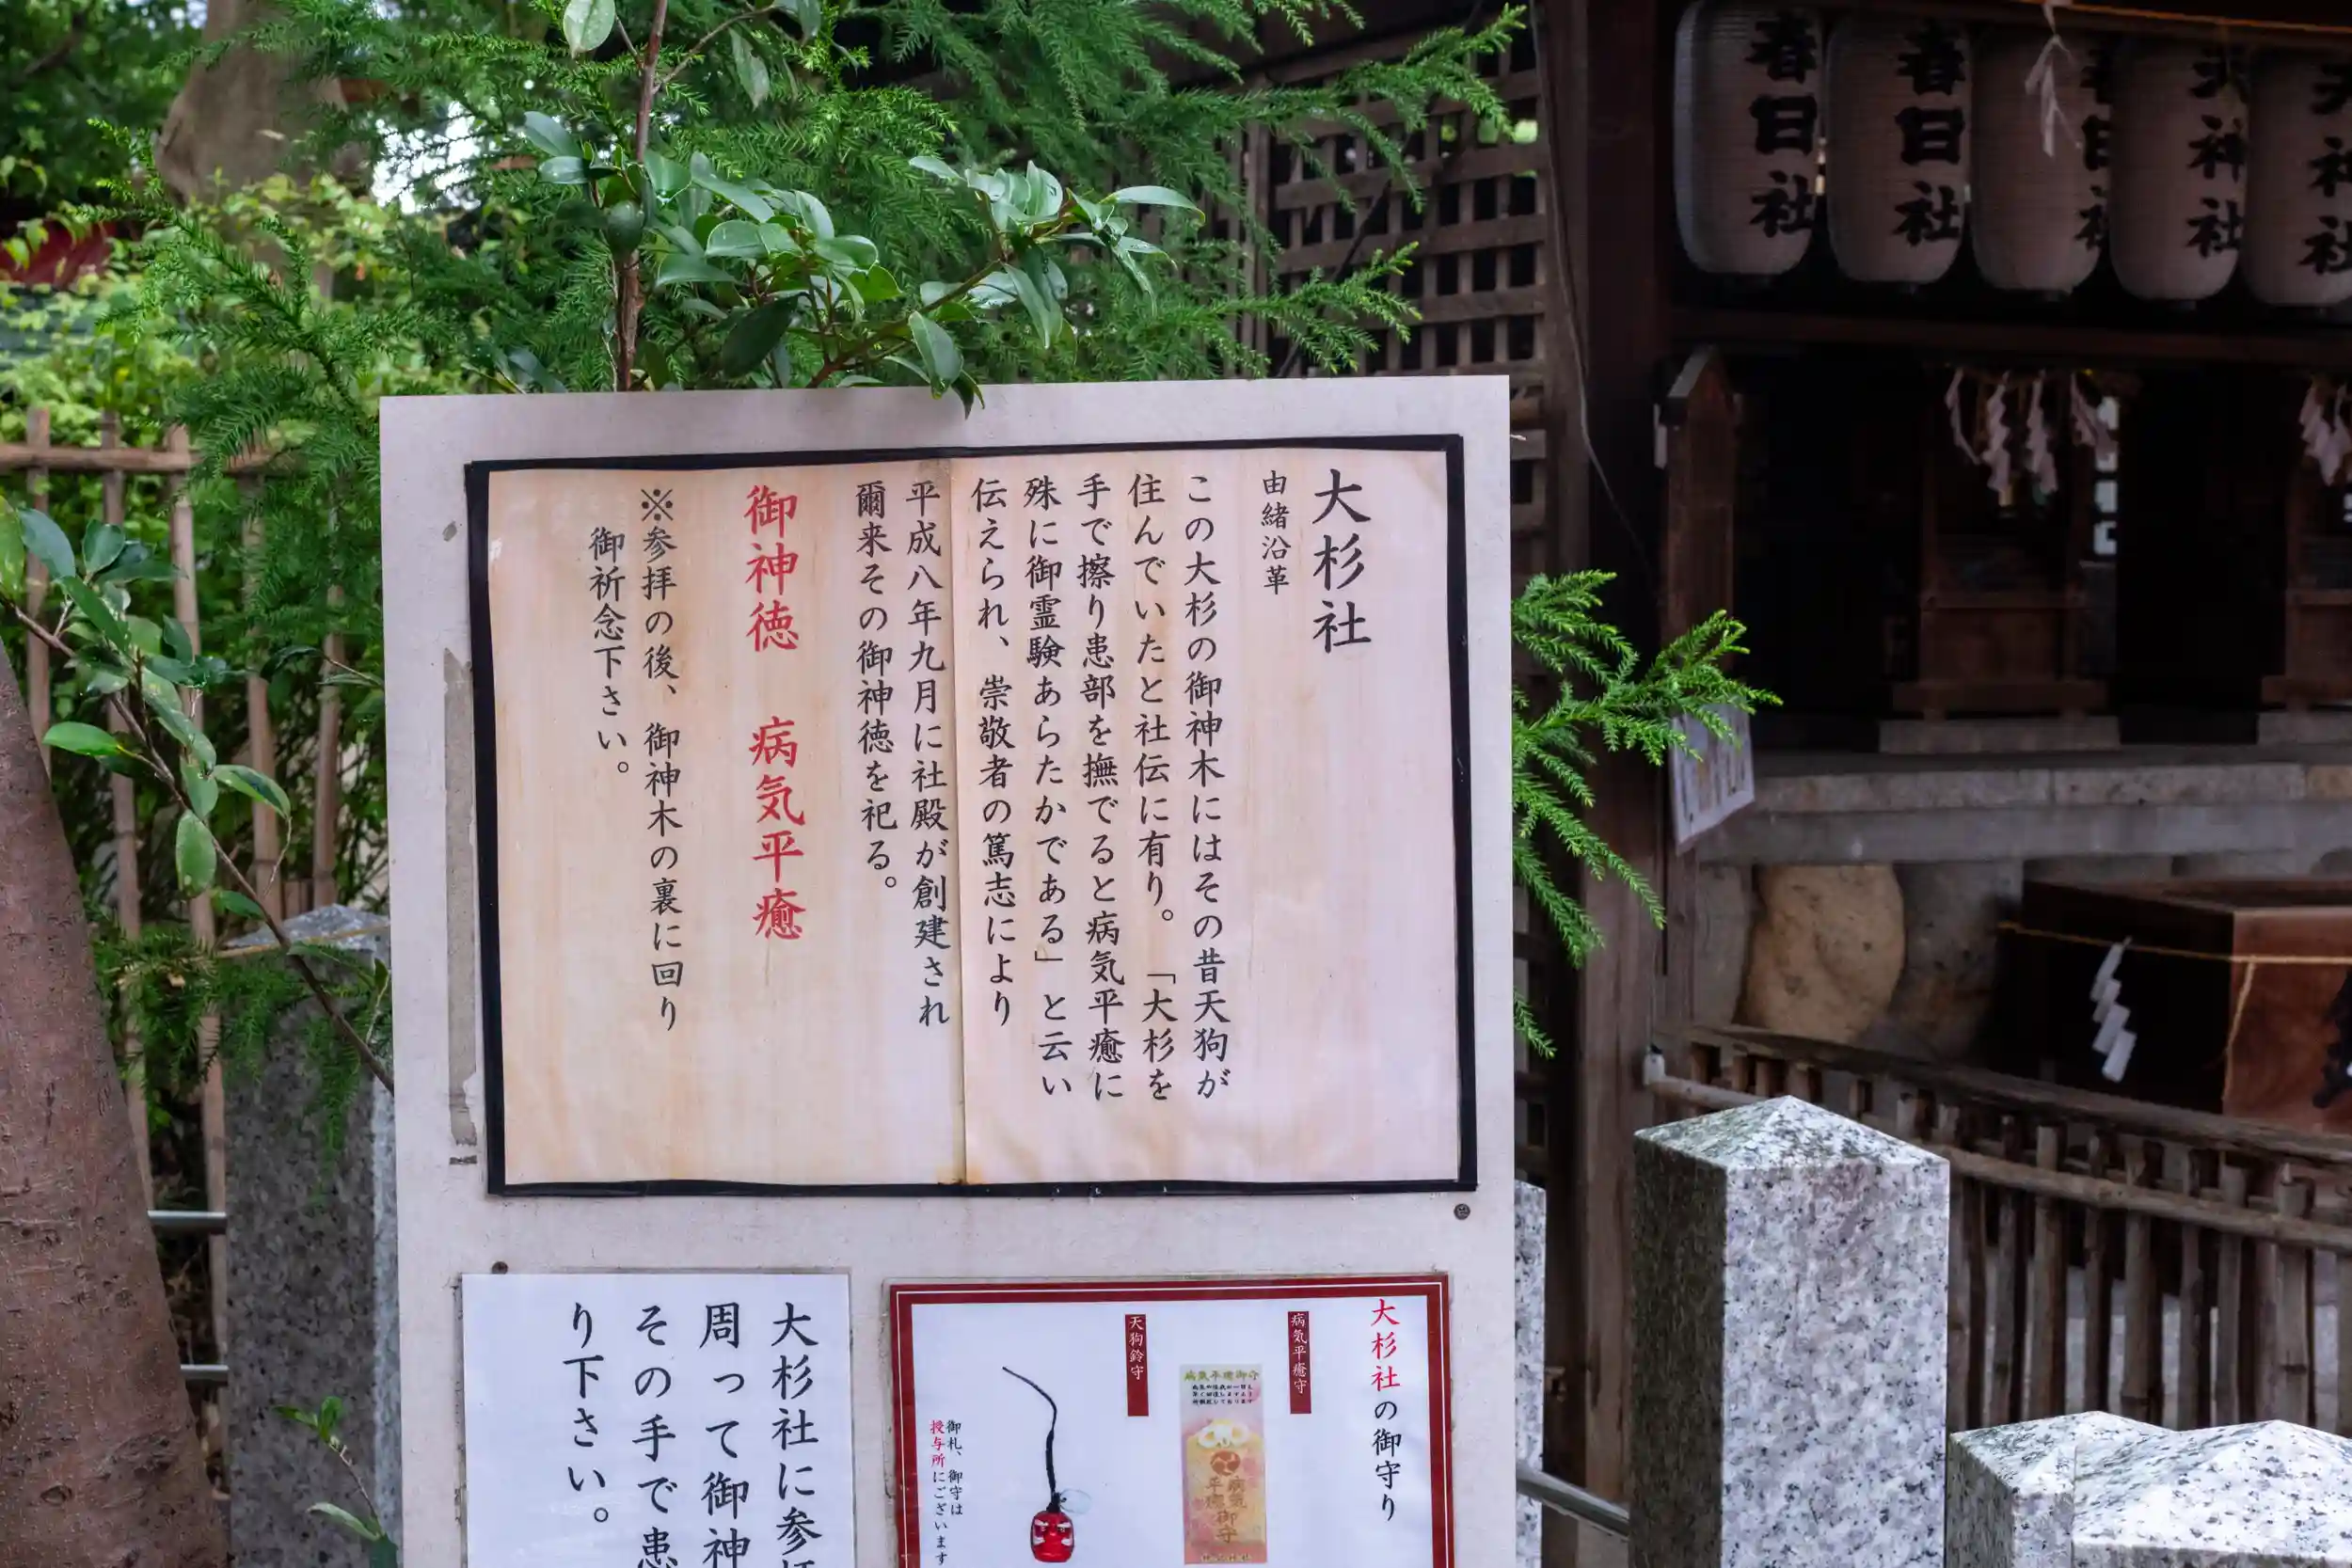 大杉社
由緒沿革
この大杉の御神木にはその昔天狗が
住んでいたと社伝に有り。「大杉を
手で擦り患部を撫でると病気平癒に
殊に御霊験あらたかである」と云い
伝えられ、崇敬者の篤志により
平成八年九月に社殿が創建され
爾来その御神徳を祀る。
御神徳 病気平癒
※参拝の後、御神木の裏に回り
御祈念下さい。
大杉社の御守り
病気平癒守
天狗鈴守
病気平癒御守
御札、御守は
授与所にございます
大杉社に参拝
周って御神
その手で患
り下さい。
春日社
春日社
春日社
天神社
天神社